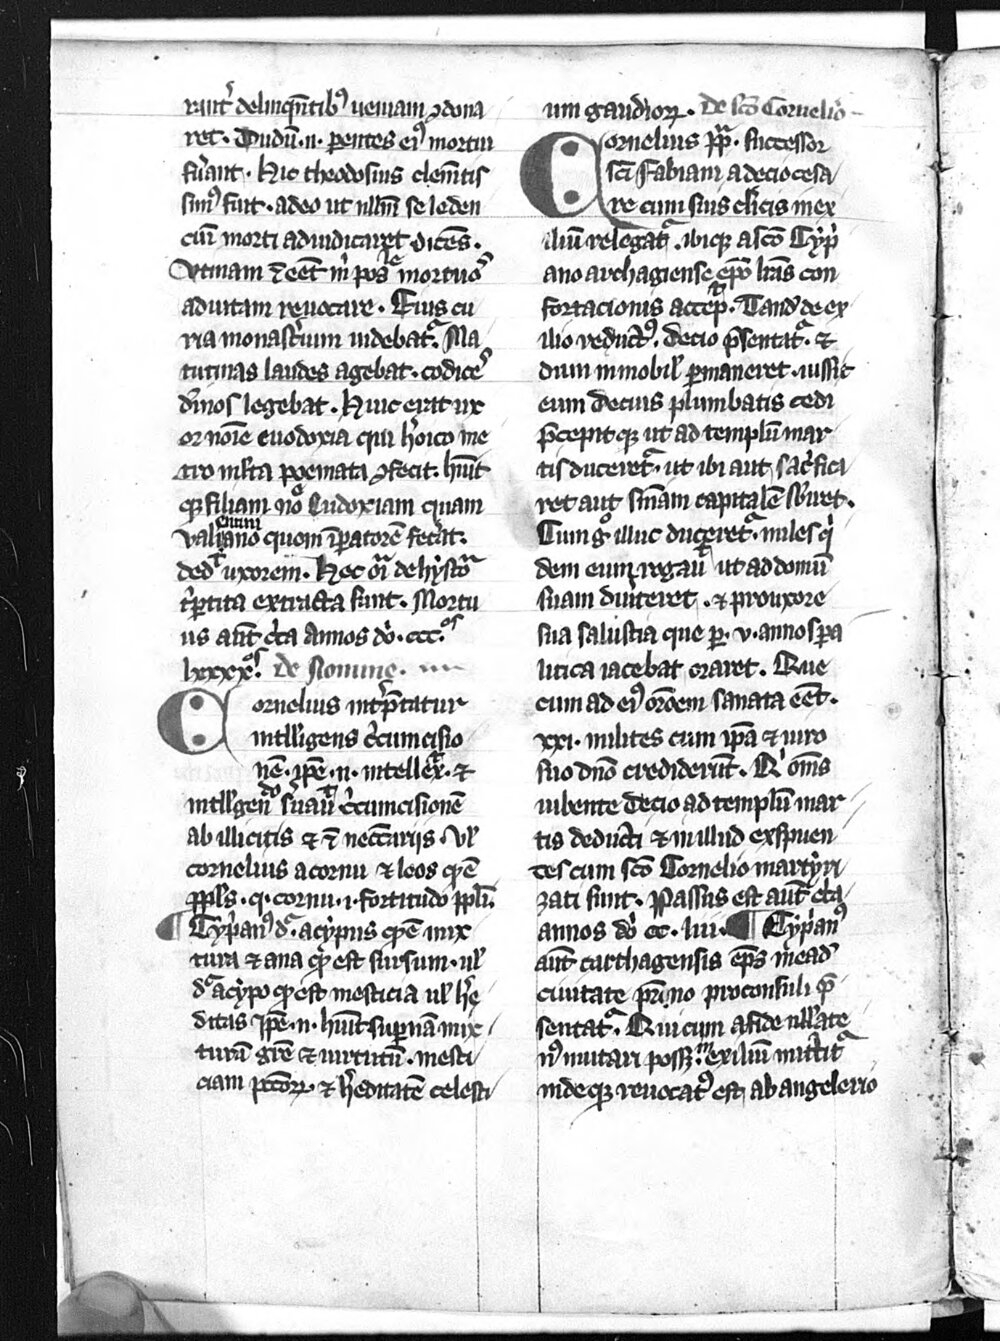 runt᷑ delinq̄ntib᷒ ueniam ꝯdona
ret. Dudū .n. pentes ei᷒ mortui
fu̾ant. Hic theodosius clem̄tis
sim᷒ fuit. adeo ut nllm̄ se leden
ciū morti adiudicaret dicēs.
Vtinam ēēt m̄ mortuos
ad uitam reuocare. Eius cu
ria monast̾ium uidebat᷑. Ma
tutinas laudes agebat. codices
diuīos legebat. Huic erat ux
or noīe eudoxia qui h̾oico me
tro m̄lta poemata ꝯfecit. hūit
qꝫ filiam noī̄e Eudoxiam quam
Valentiniano quem īpatorē fec̾at
ded᷑ uxorem. Hec oīa de hystoͬ
t̾ꝑtita extracta sunt. Mortu
us aūt c̾ca annos dō. ccc.oˢ
lxxxxoˢ. de Nomine.
Cornelius int̾p̄tatur
intll̾igens c̾cumcisio
nē. ip̄e .n. intellex᷑. ⁊
intll̾gendo s̾uauit c̾cumcisionē
ab illicitis ⁊ ī neccariis. Vl̾
cornelius a cornu ⁊ leos qđ ē
ppl̾s. q. cornu .i. fortitudo ppl̾i.
¶ Cyp̾an᷒ d᷑. a cypris qđ ē mix
tura ⁊ ana qđ est sursum. ul̾
d᷑ a cypo qđ est mesticia ul̾ he
ditas Ip̄e .n. hūit sup̄nā mix
turā grē ⁊ uirtutū. mesti
ciam pccōꝝ. ⁊ h̾editatē celesti
um gaudioꝝ. De sc̄o Cornelio
Cornelius pp̄. successor
sc̄i Fabiani a decio cesa
re cum suis cl̾icis in ex
iliū relegat᷑. ibiqꝫ a sc̄o Cyp̾
ano archagiense ep̄o lr̄as con
fortacionis accep̄. Tand̄ de ex
ilio reduct᷒. decio p̄sentat᷑. ⁊
dum inmobil̾ ꝑmaneret. iussit
eum decius plumbatis cedi
p̄cepitqꝫ ut ad templū mar
tis duceret᷑. ut ibi aut sac̾fica
ret aut sn̄iam capitalē sb̾iret.
Cum g̊ illuc duceret᷑. miles q̾
dem eum rogauit ut ad domū
suam diu̾teret. ⁊ pro uxore
sua salustia que ꝑ .v. annos pa
litica iacebat oraret. Que
cum ad ei᷒ orōem sanata eēt.
xxi. milites cum ip̄a ⁊ uiro
suo dn̄o credider̄t. Qi oms̄
iubente decio ad templū mar
tis deducti ⁊ in illud exspuen
tes cum sc̄o Cornelio martyri
zati sunt. Passus est aūt c̾ca
annos dō cc. liii. ¶ Cyp̾an᷒
aūt carthagensis ep̄s in ead̄
ciuitate p̄rno proconsuli p̄
sentat᷑. Qui cum a fide nll̾ate
n᷒ mutari possꝫ in exiliū mittit᷑
indeqꝫ reuocat᷒ est ab angelerio